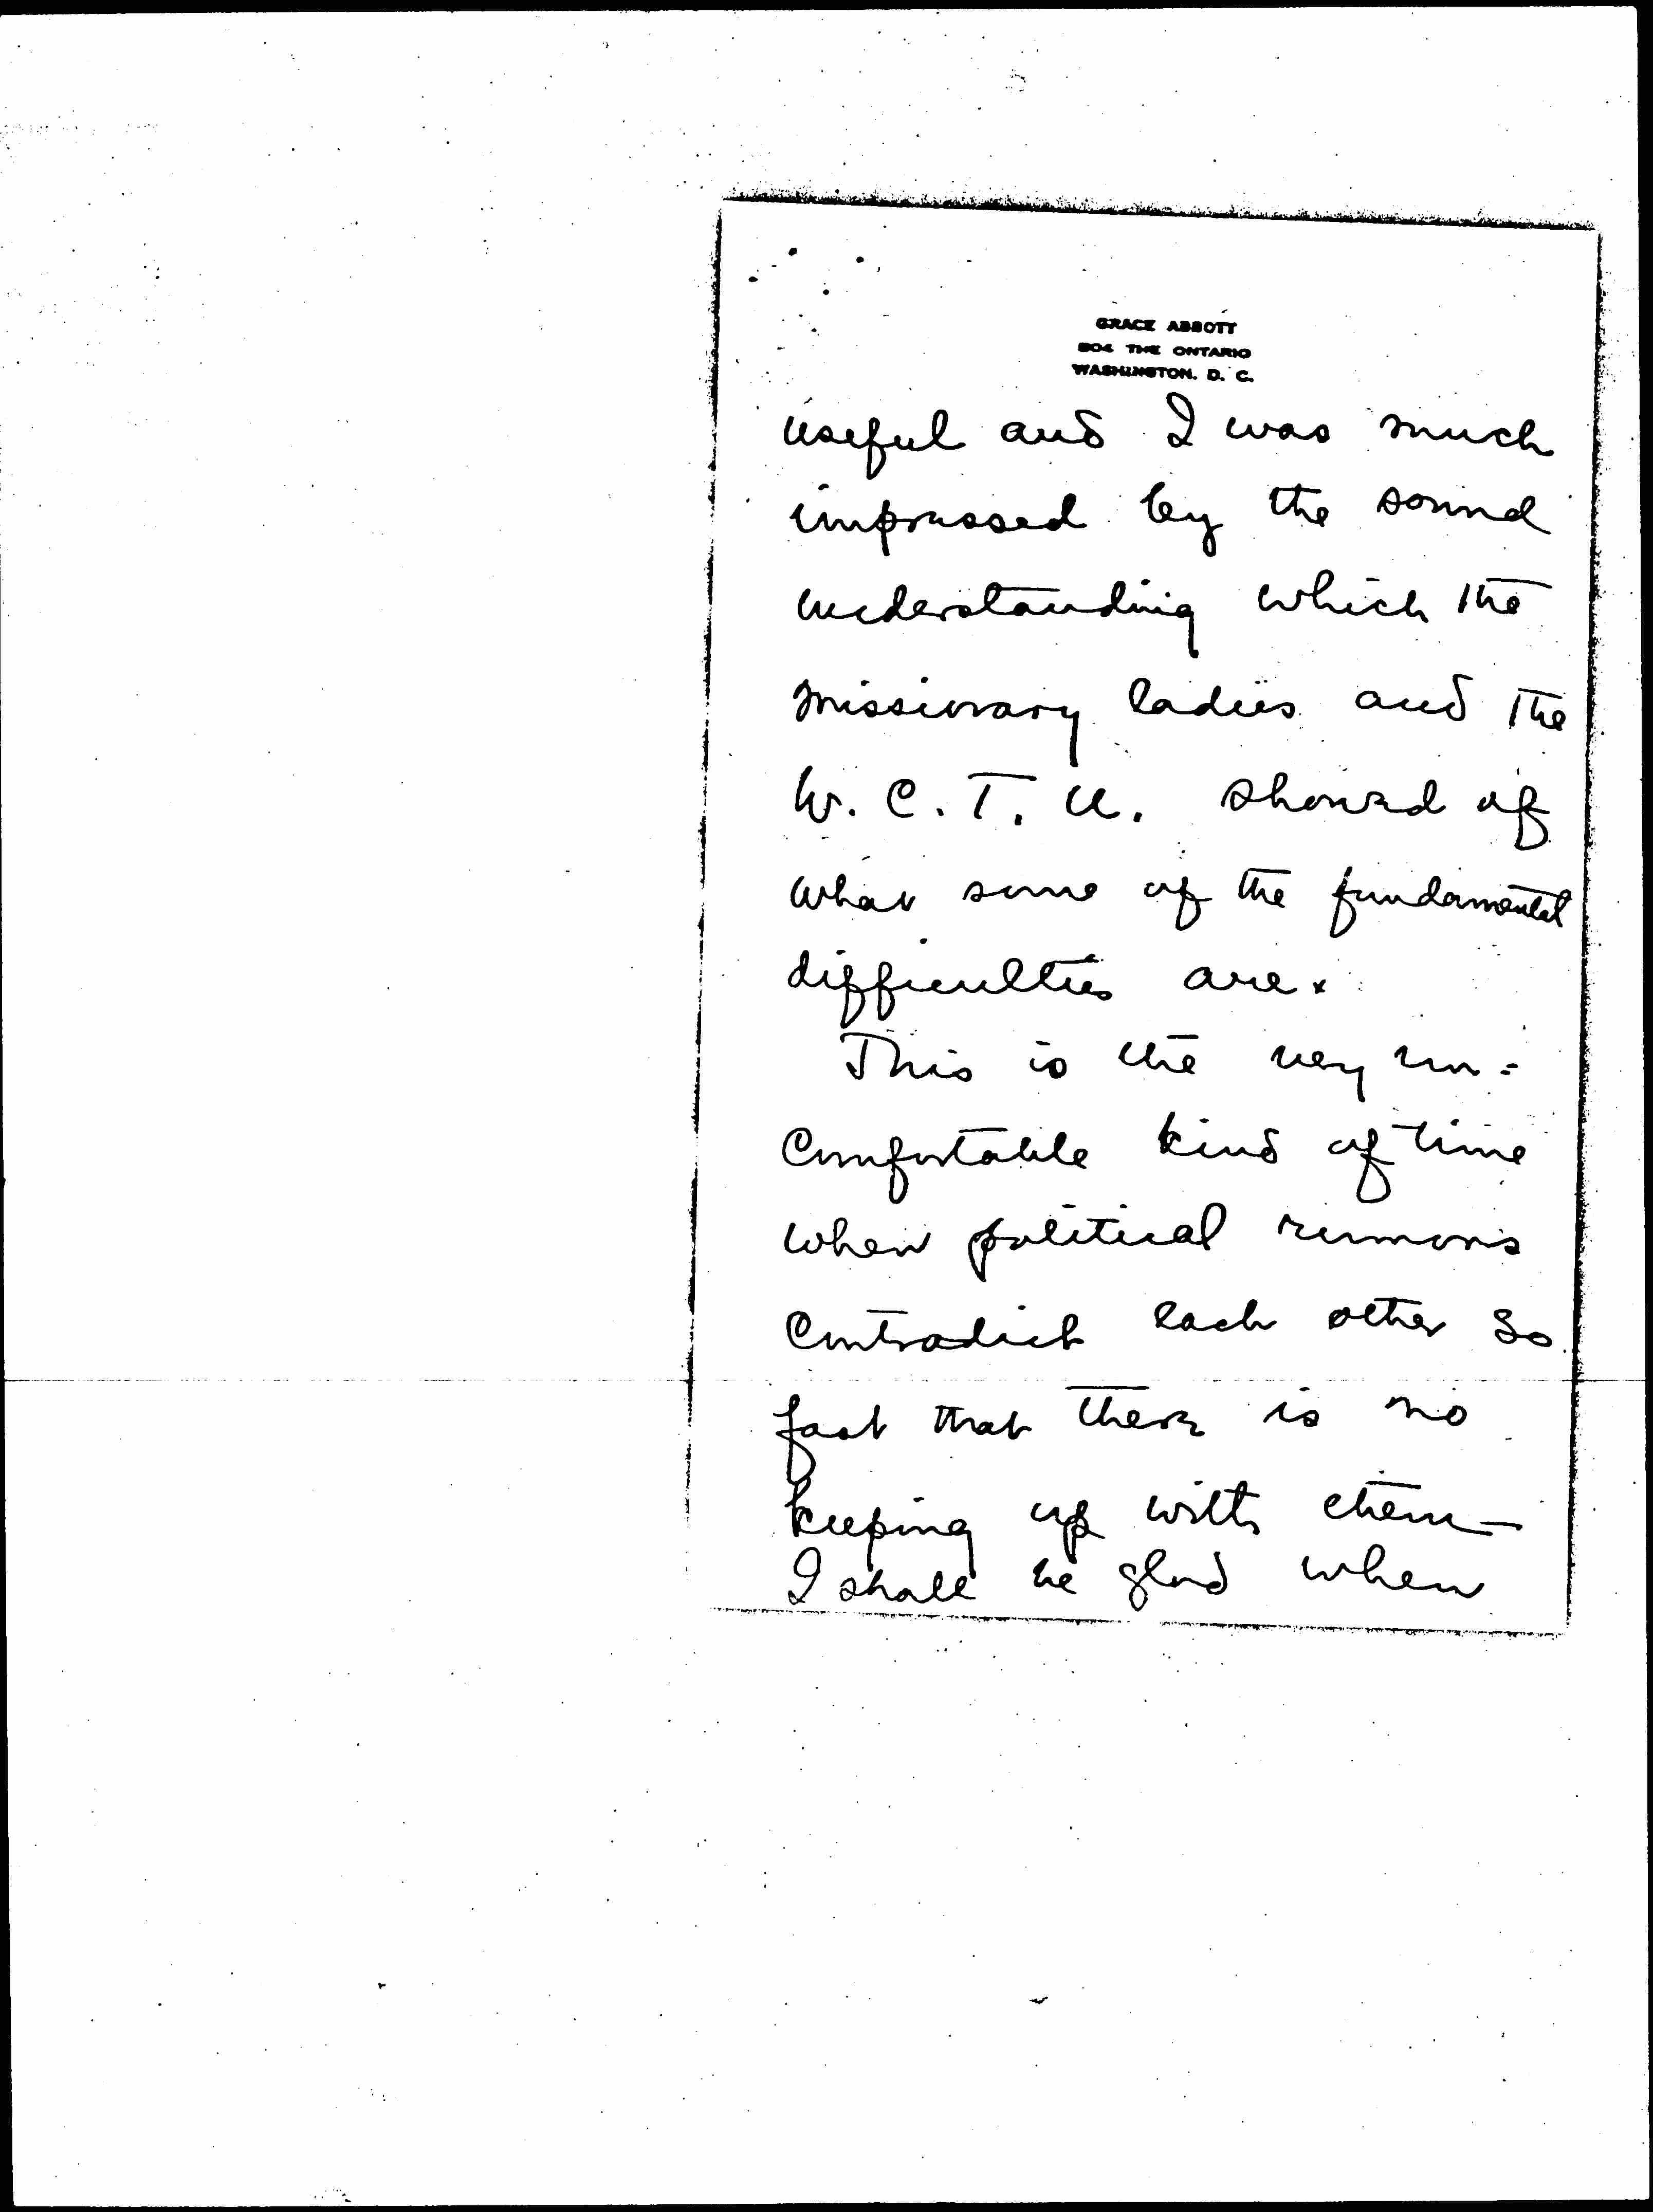 GRACE ABBOTT
504 THE ONTARIO
WASHINGTON. D. C.
useful and I was much
impressed by the sound
understanding which the
missionary ladies and the
W. C. T. U. showed of
what some of the fundamental
difficulties are.
This is the very un=
comfortable kind of time
when political rumors
contradict each other so
fast that there is no
keeping up with them—
I shall be glad when